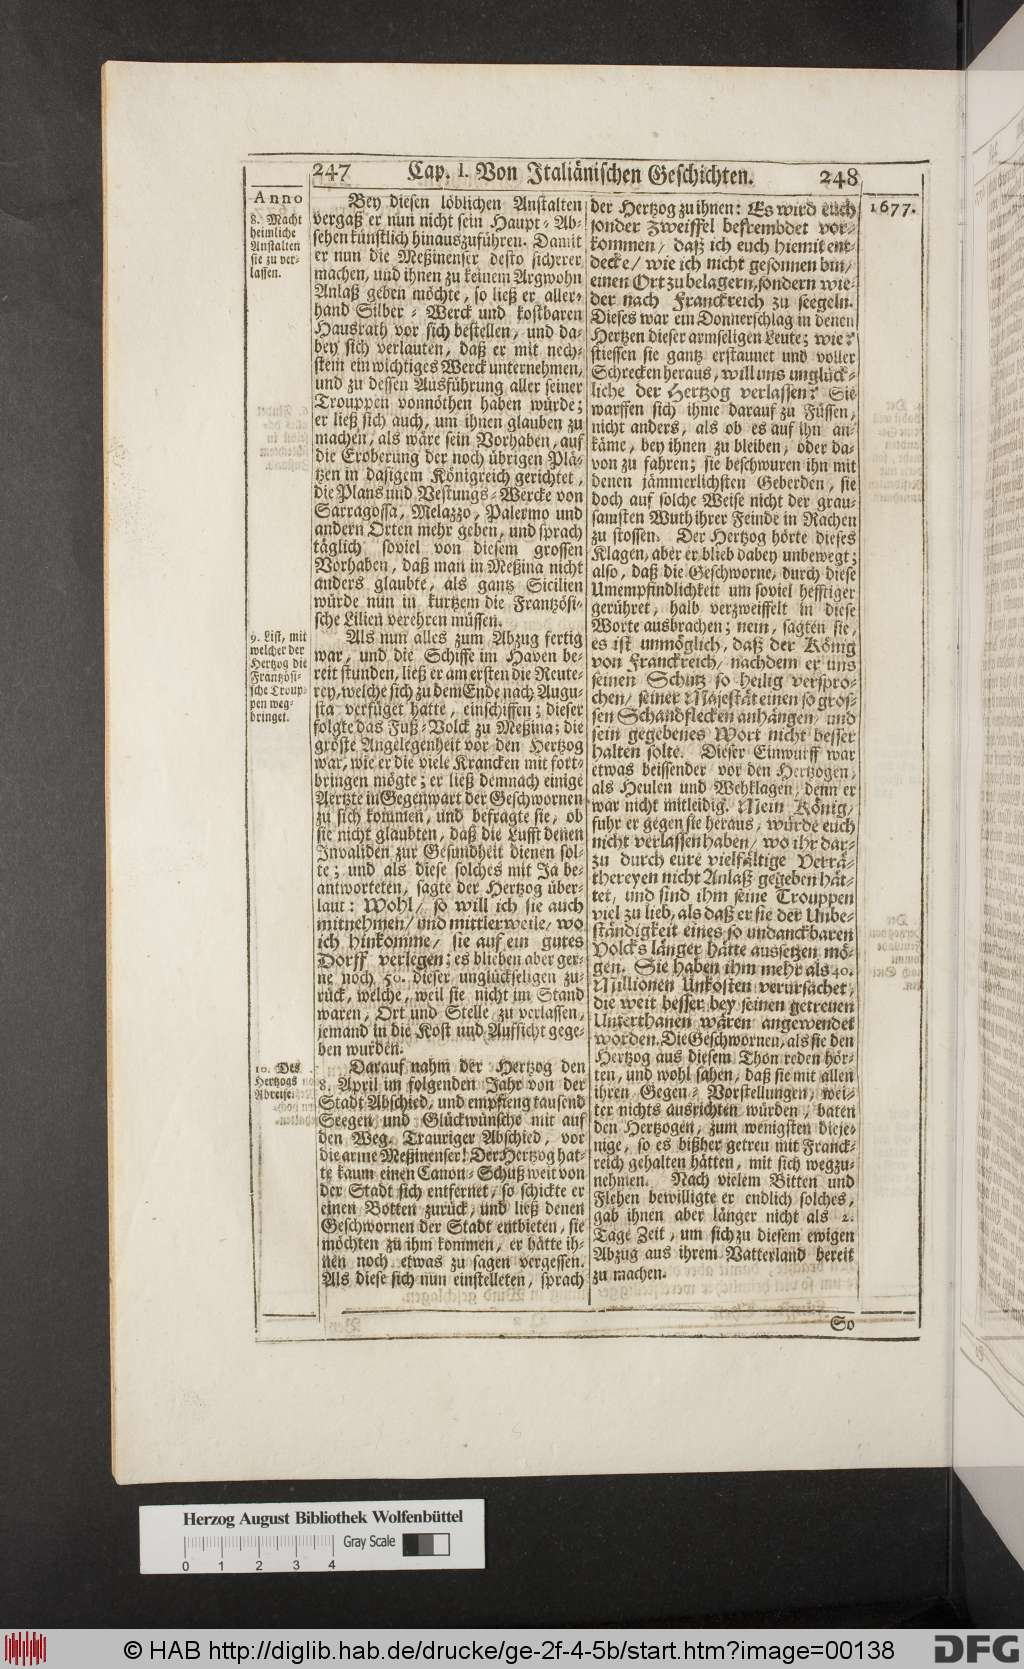 247 Cap. I. Von Italiänischen Geschichten. 248
Anno
8. Macht
heimliche
Anstalten
sie zu ver-
lassen.
Bey diesen löblichen Anstalten
vergaß er nun nicht sein Haupt-Ab-
sehen künstlich hinauszuführen. Damit
er nun die Meßinenser desto sicherer
machen, und ihnen zu keinem Argwohn
Anlaß geben möchte, so ließ er aller-
hand Silber-Werck und kostbaren
Hausrath vor sich bestellen, und da-
bey sich verlauten, daß er mit nech-
stem ein wichtiges Werck unternehmen,
und zu dessen Ausführung aller seiner
Trouppen vonnöthen haben würde;
er ließ sich auch, um ihnen glauben zu
machen, als wäre sein Vorhaben, auf
die Eroberung der noch übrigen Plä-
tzen in dasigem Königreich gerichtet,
die Plans und Vestungs-Wercke von
Sarragossa, Melazzo, Palermo und
andern Orten mehr geben, und sprach
täglich soviel von diesem grossen
Vorhaben, daß man in Meßina nicht
anders glaubte, als gantz Sicilien
würde nun in kurtzem die Frantzösi-
sche Lilien verehren müssen.
9. List, mit
welcher der
Hertzog die
Frantzösi-
sche Troup-
pen weg-
bringet.
Als nun alles zum Abzug fertig
war, und die Schiffe im Haven be-
reit stunden, ließ er am ersten die Reute-
rey, welche sich zu dem Ende nach Augu-
sta verfüget hatte, einschiffen; dieser
folgte das Fuß-Volck zu Meßina; die
gröste Angelegenheit vor den Hertzog
war, wie er die viele Krancken mit fort-
bringen mögte; er ließ demnach einige
Aertzte in Gegenwart der Geschwornen
zu sich kommen, und befragte sie, ob
sie nicht glaubten, daß die Lufft denen
Invaliden zur Gesundheit dienen sol-
te; und als diese solches mit Ja be-
antworteten, sagte der Hertzog über-
laut: Wohl/ so will ich sie auch
mitnehmen/ und mittlerweile/ wo
ich hinkomme/ sie auf ein gutes
Dorff verlegen; es blieben aber ger-
ne noch 50. dieser unglückseligen zu-
rück, welche, weil sie nicht im Stand
waren, Ort und Stelle zu verlassen,
jemand in die Kost und Aufsicht gege-
ben wurden.
10. Des
Hertzogs
Abreise.
Darauf nahm der Hertzog den
8. April im folgenden Jahr von der
Stadt Abschied, und empfieng tausend
Seegen und Glückwünsche mit auf
den Weg. Trauriger Abschied, vor
die arme Meßinenser! Der Hertzog hat-
te kaum einen Canon-Schuß weit von
der Stadt sich entfernet, so schickte er
einen Botten zurück, und ließ denen
Geschwornen der Stadt entbieten, sie
möchten zu ihm kommen, er hätte ih-
nen noch etwas zu sagen vergessen.
Als diese sich nun einstelleten, sprach
1677.
der Hertzog zu ihnen: Es wird euch
sonder Zweiffel befrembdet vor-
kommen/ daß ich euch hiemit ent-
decke/ wie ich nicht gesonnen bin/
einen Ort zu belagern, sondern wie-
der nach Franckreich zu seegeln.
Dieses war ein Donnerschlag in denen
Hertzen dieser armseligen Leute; wie?
stiessen sie gantz erstaunet und voller
Schrecken heraus, will uns unglück-
liche der Hertzog verlassen? Sie
warffen sich ihme darauf zu Füssen,
nicht anders, als ob es auf ihn an-
käme, bey ihnen zu bleiben, oder da-
von zu fahren; sie beschwuren ihn mit
denen jämmerlichsten Geberden, sie
doch auf solche Weise nicht der grau-
samsten Wuth ihrer Feinde in Rachen
zu stossen. Der Hertzog hörte dieses
Klagen, aber er blieb dabey unbewegt;
also, daß die Geschworne, durch diese
Unempfindlichkeit um soviel hefftiger
gerühret, halb verzweiffelt in diese
Worte ausbrachen; nein, sagten sie,
es ist unmöglich, daß der König
von Franckreich/ nachdem er uns
seinen Schutz so heilig verspro-
chen/ seiner Majestät einen so gros-
sen Schandflecken anhängen/ und
sein gegebenes Wort nicht besser
halten solte. Dieser Einwurff war
etwas beissender vor den Hertzogen,
als Heulen und Wehklagen, denn er
war nicht mitleidig. Mein König/
fuhr er gegen sie heraus, würde euch
nicht verlassen haben/ wo ihr dar-
zu durch eure vielfältige Verrä-
thereyen nicht Anlaß gegeben hät-
tet, und sind ihm seine Trouppen
viel zu lieb, als daß er sie der Unbe-
ständigkeit eines so undanckbaren
Volcks länger hätte aussetzen mö-
gen. Sie haben ihm mehr als 40.
Millionen Unkosten verursachet,
die weit besser bey seinen getreuen
Unterthanen wären angewendet
worden. Die Geschwornen, als sie den
Hertzog aus diesem Thon reden hör-
ten, und wohl sahen, daß sie mit allen
ihren Gegen-Vorstellungen, wei-
ter nichts ausrichten würden, baten
den Hertzogen, zum wenigsten dieje-
nige, so es bißher getreu mit Franck-
reich gehalten hätten, mit sich wegzu-
nehmen. Nach vielem Bitten und
Flehen bewilligte er endlich solches,
gab ihnen aber länger nicht als 2.
Tage Zeit, um sich zu diesem ewigen
Abzug aus ihrem Vatterland bereit
zu machen.
So
Herzog August Bibliothek Wolfenbüttel
Gray Scale
0 1 2 3 4
© HAB http://diglib.hab.de/drucke/ge-2f-4-5b/start.htm?image=00138
DFG